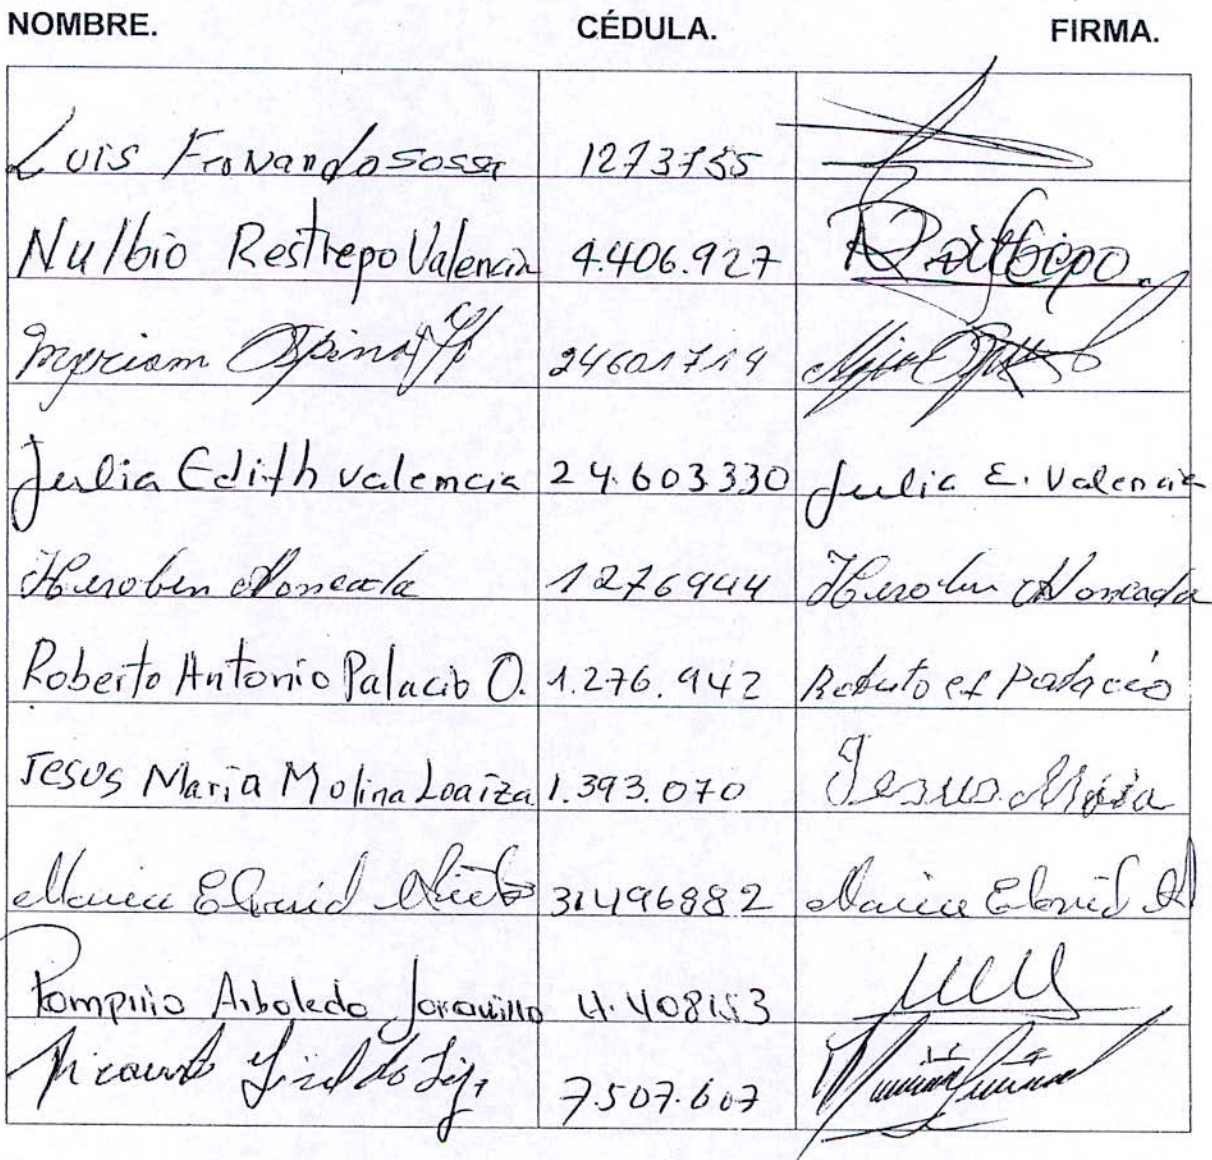 NOMBRE. CÉDULA. FIRMA.
Luis Fernando Sossa 1273755
Nulbio Restrepo Valencia 4.406.927 Restrepo
Myriam Ospina 24601714
Julia Edith valencia 24.603330 Julia E. Valencia
Heroben Moncada 1276944 Heroben Moncada
Roberto Antonio Palacio O. 1.276.942 Roberto A Palacio
Jesus Maria Molina Loaiza 1.393.070 Jesus Maria
Maria Nieto 31496882 Maria
Pompilio Arboledo Jaramillo 4.408153
7.507.607